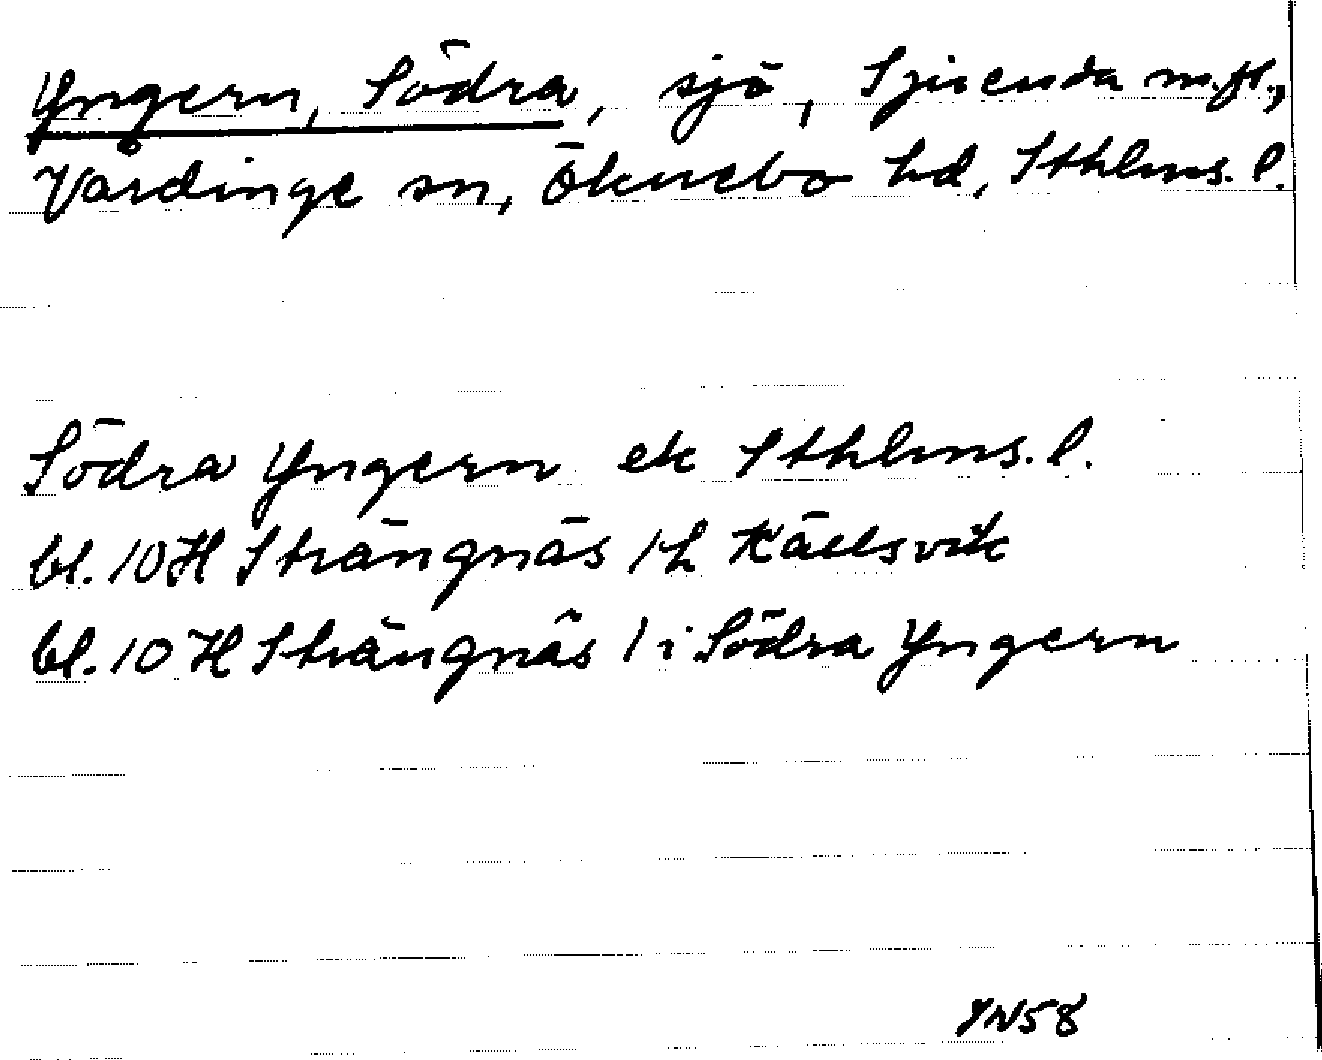 Yngern, Södra, sjö, Sjuenda m.fl.,
Vårdinge sn, Öknebo hd, Sthlms. l.
Södra Yngern ek Sthlms. l.
bl. 10 H Strängnäs 1 h Källsvik
bl. 10 H Strängnäs 1 i Södra Yngern
YN58